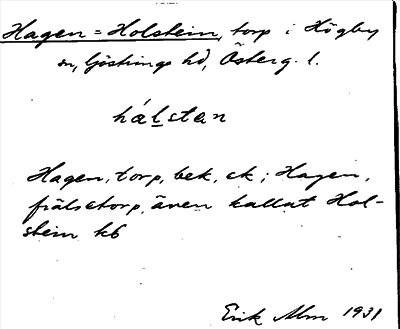 Hagen = Holstein, torp i Högby
sn, Göstrings hd, Österg. l.
hálstan
Hagen, torp, bek, ek; Hagen,
frälsetorp, även kallat Hol-
stein kb
Erik Alm 1931